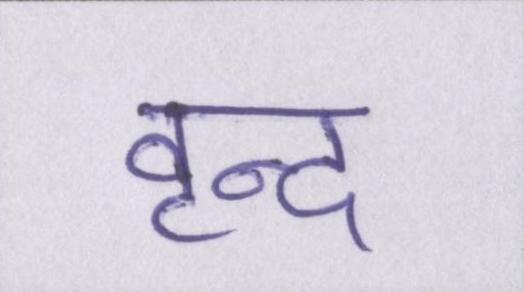 वृन्द